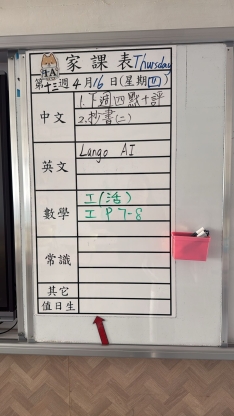 家課表 Thursday
第十三週 4月16日(星期四)
中文
1.下週四點十評
2.抄書(二)
英文
Lango AI
數學
工(活)
工 P 7-8
常識
其它
值日生